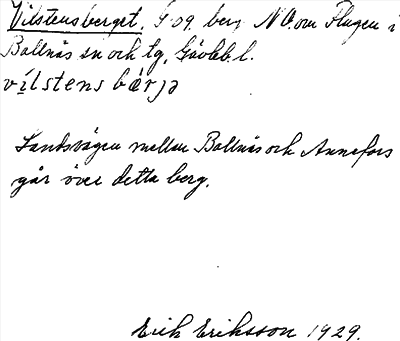 Vilstensberget. G 09. berg NO. om Flugen i
Bollnäs sn och tg, Gävleb. l.
vílstens bärjə
Landsvägen mellan Bollnäs och Annefors
går över detta berg.
Erik Eriksson 1929.